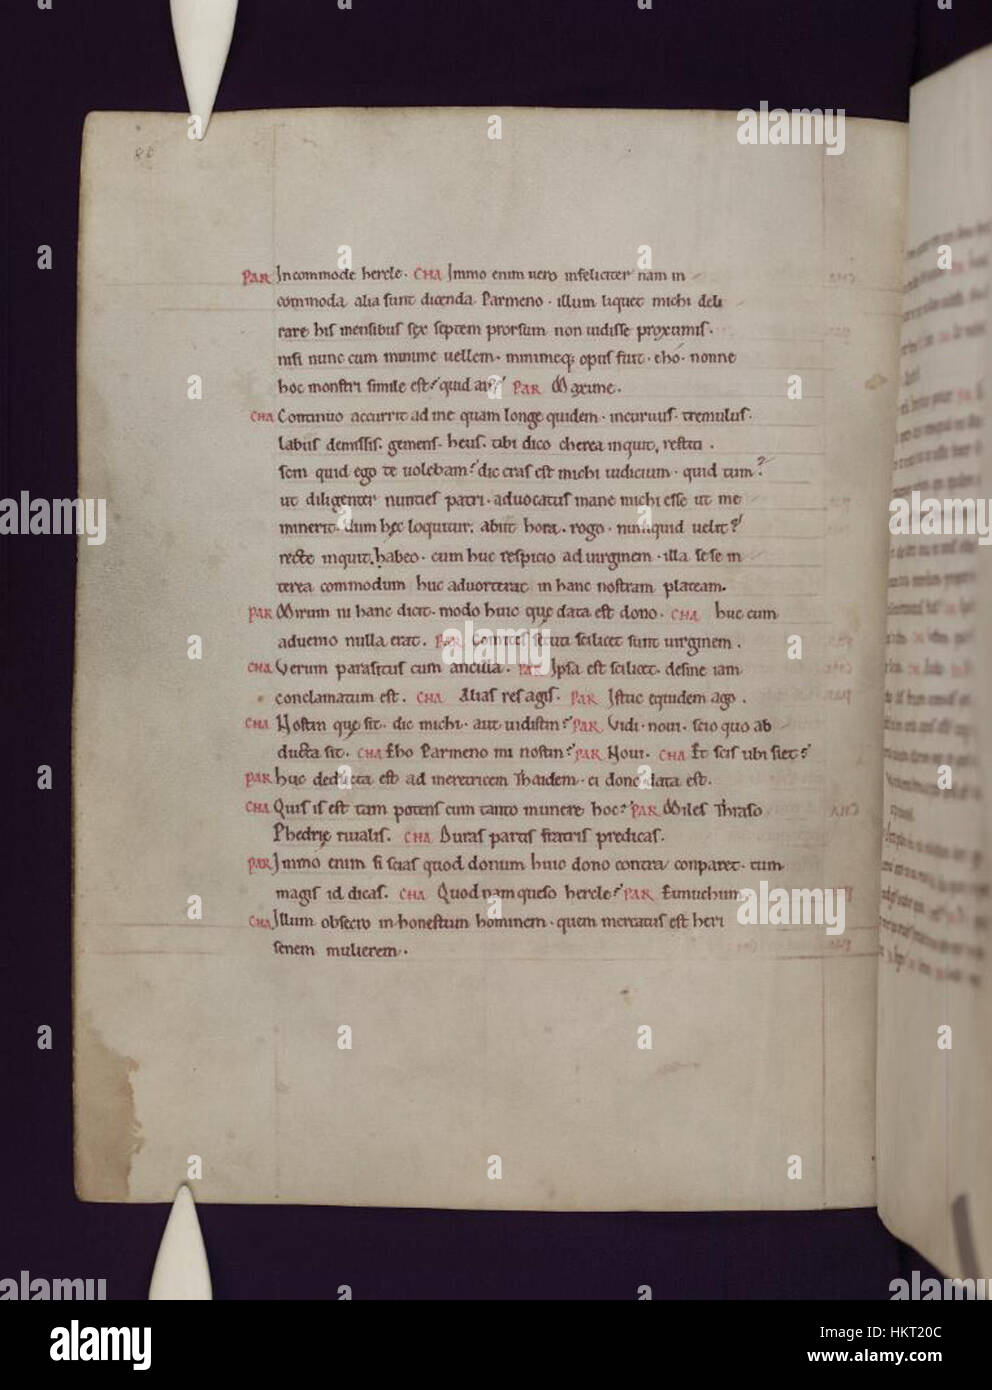 80
PAR Incommode hercle. CHA Immo enim uero infeliciter nam in
commoda alia sunt dicenda Parmeno. illum liquet michi deie
rare his mensibus sex septem prorsum non uidisse proximis.
nisi nunc cum minime uellem. minimeq; opus fuit. eho. nonne
hoc monstri simile est? quid ais? PAR Maxime.
CHA Continuo accurrit ad me quam longe quidem. incuruus. tremulus.
labiis demissis. gemens. heus. tibi dico cherea inquit, restiti.
sem quid ego te uolebam? dic cras est michi iudicium. quid tum?
ut diligenter nunties patri. aduocatus mane michi esse ut me
minerit. dum hec loquitur. abiit hora. rogo. nunquid uelit?
recte inquit. habeo. cum huc respicio ad uirginem. illa sese in
terea commodum huc aduorterat in hanc nostram plateam.
PAR Mirum ni hanc dicit. modo huic que data est dono. CHA huc cum
aduenio nulla erat. PAR Comites secuti scilicet sunt uirginem.
CHA Verum parasitus cum ancilla. PAR Ipsa est scilicet. desine iam
conclamatum est. CHA Alias res agis. PAR Istuc equidem ago.
CHA Nostin que sit. dic michi. aut uidistin? PAR Vidi. noui. scio quo ab
ducta sit. CHA Eho Parmeno mi nostin? PAR Noui. CHA Et scis ubi siet?
PAR huc deducta est ad meretricem Thaidem. ei dono data est.
CHA Quis is est tam potens cum tanto munere hoc? PAR Miles Thraso
Phedrie riualis. CHA Duras partis fratris predicas.
PAR Immo enim si scias quod donum huic dono contra conparet. tum
magis id dicas. CHA Quod nam queso hercle? PAR Eunuchum.
CHA Illum obsecro inhonestum hominem. quem mercatus est heri
senem mulierem.
alamy
Image ID: HKT20C
www.alamy.com